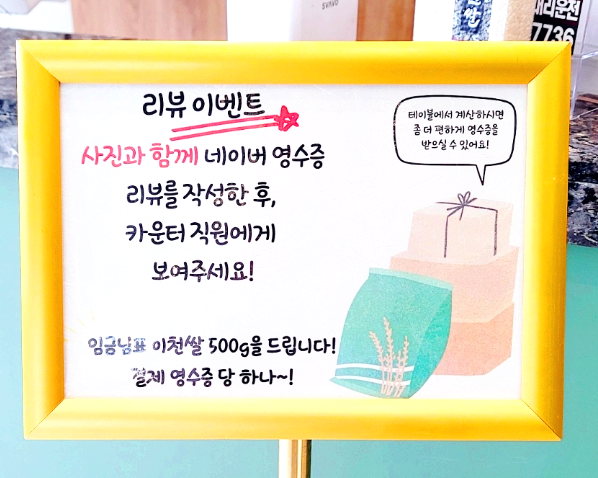 SVAVO
대리운전
7736
리뷰 이벤트
테이블에서 계산하시면
좀 더 편하게 영수증을
받으실 수 있어요!
사진과 함께 네이버 영수증
리뷰를 작성한 후,
카운터 직원에게
보여주세요!
임금님표 이천쌀 500g을 드립니다!
결제 영수증 당 하나~!